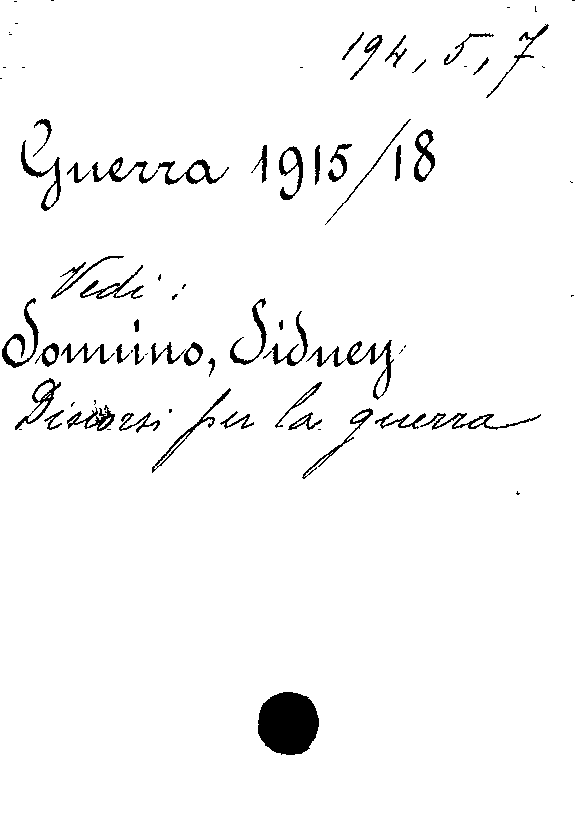 194, 5, 7
Guerra 1915/18
Vedi:
Sonnino, Sidney
Discorsi per la guerra